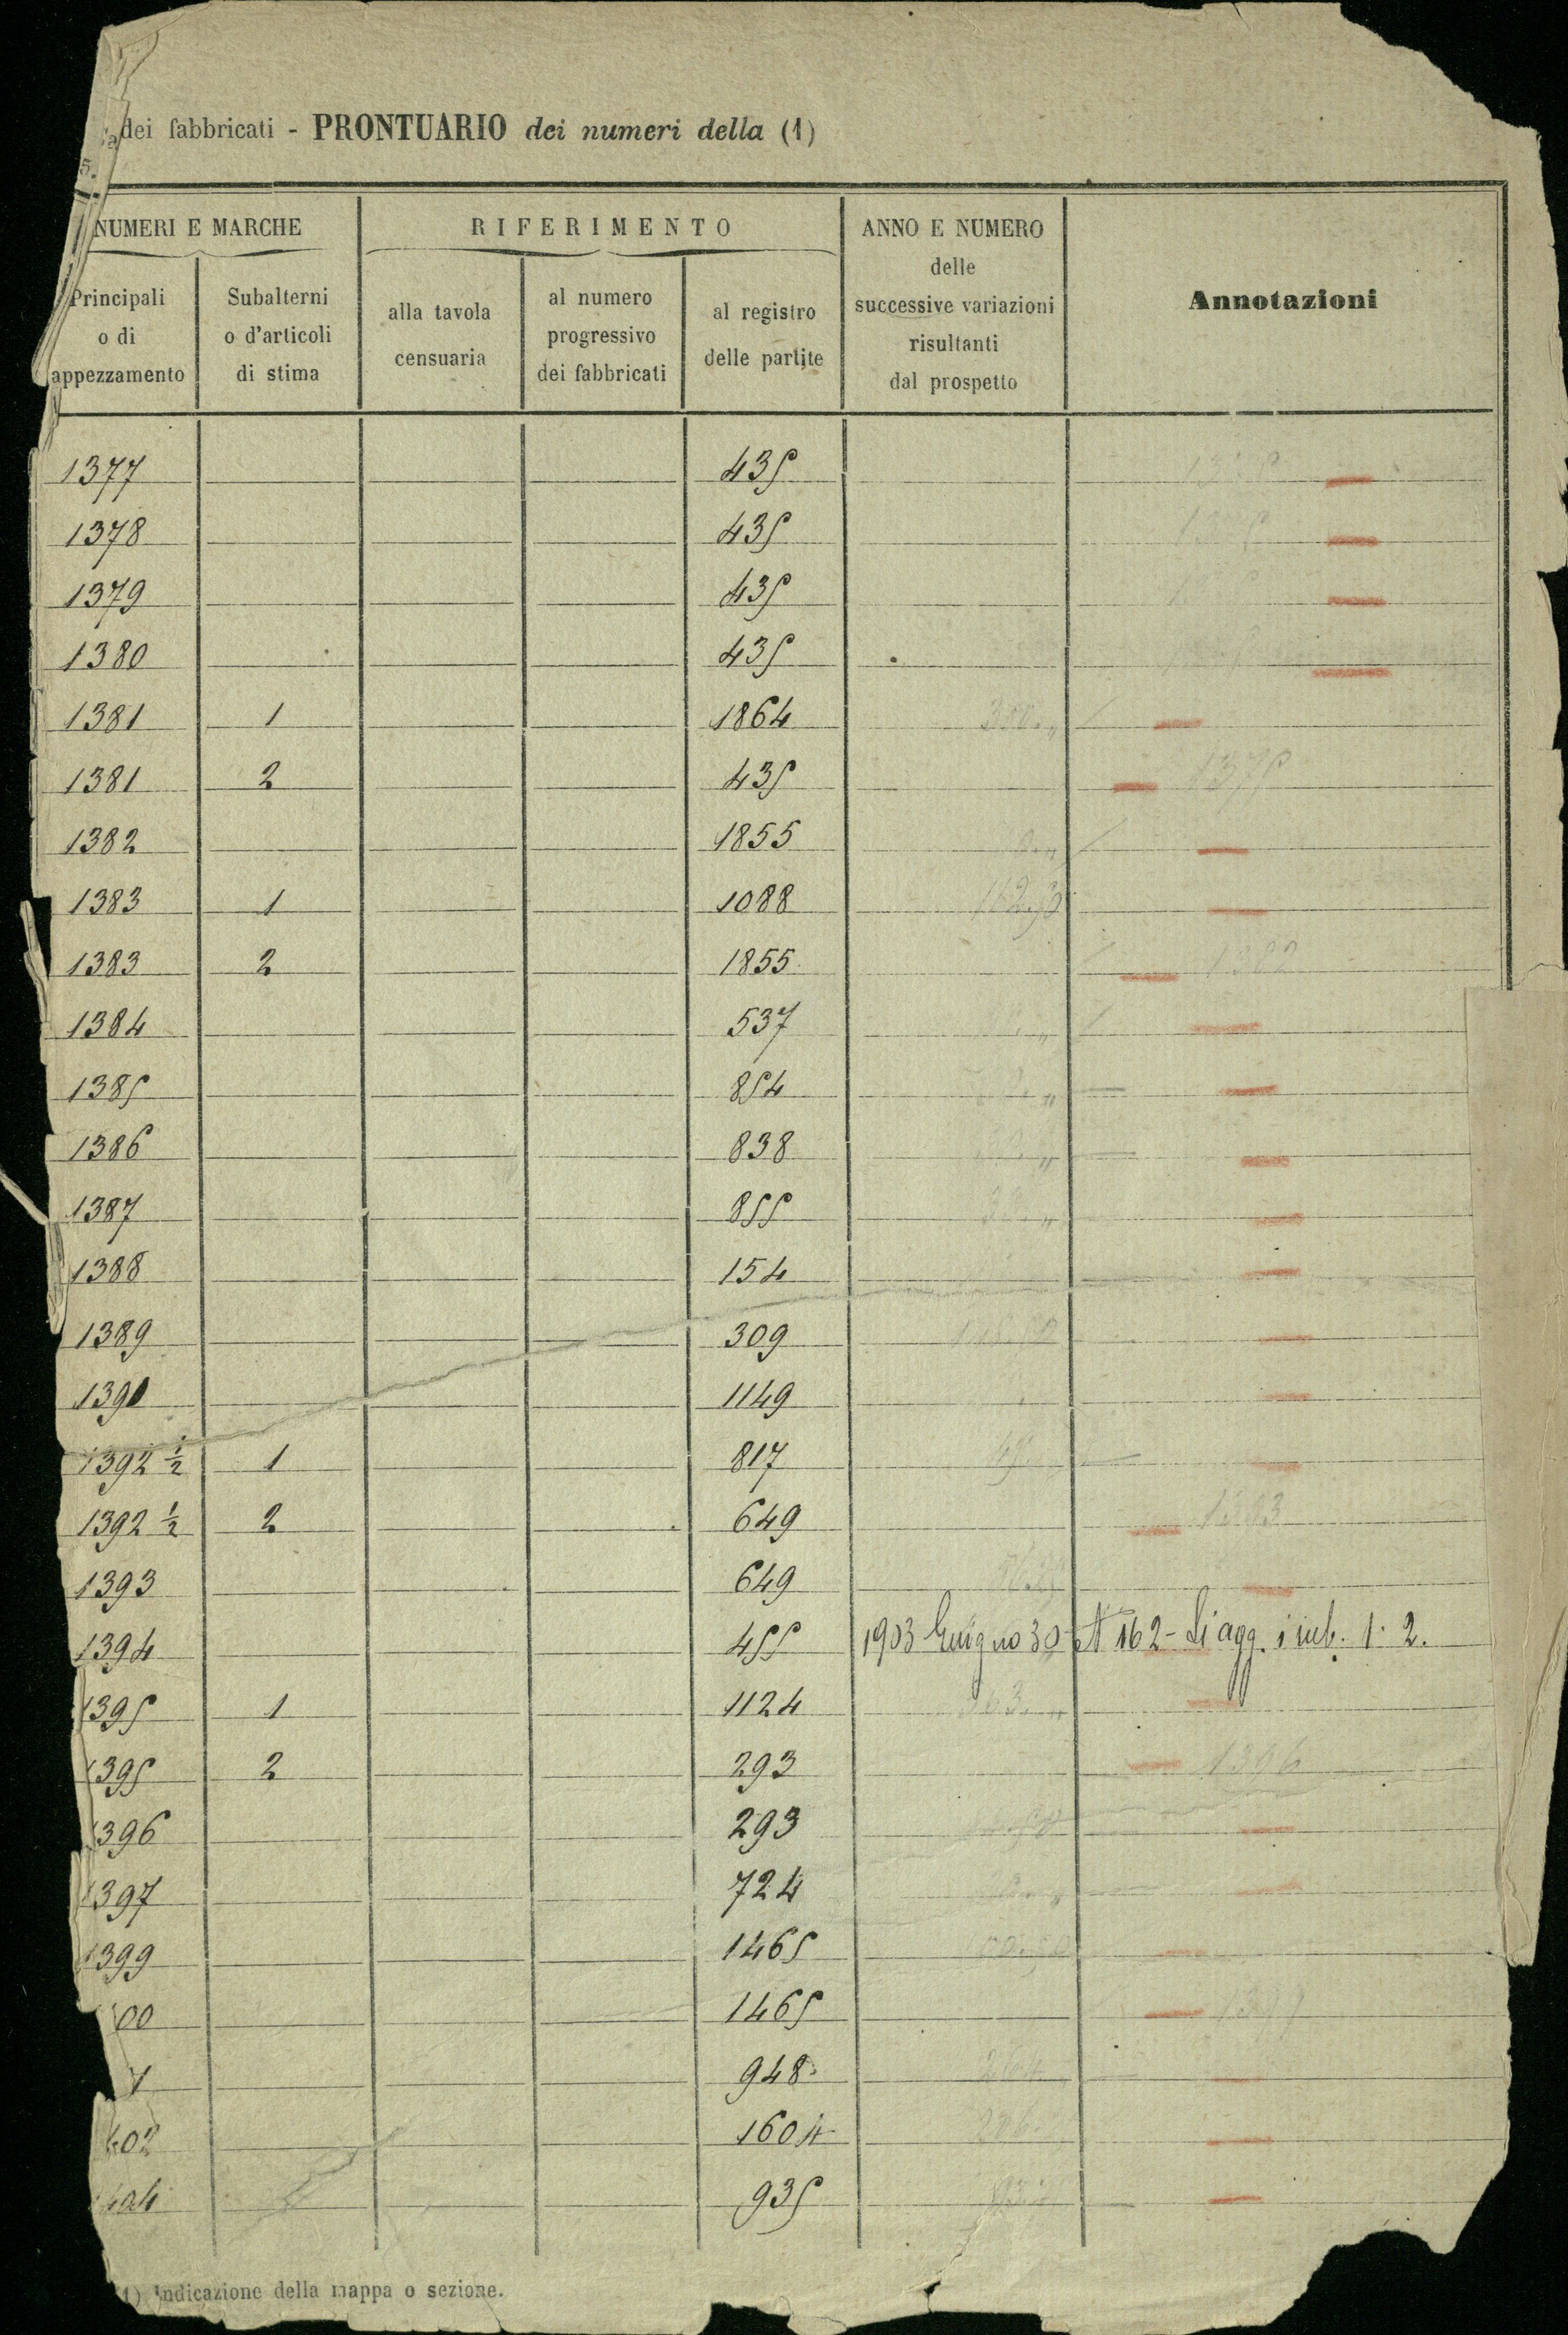 dei fabbricati - PRONTUARIO dei numeri della (1)
5.
NUMERI E MARCHE
RIFERIMENTO
ANNO E NUMERO
delle
successive variazioni
risultanti
dal prospetto
Annotazioni
Principali
o di
appezzamento
Subalterni
o d'articoli
di stima
alla tavola
censuaria
al numero
progressivo
dei fabbricati
al registro
delle partite
1377 435
1378 435
1379 435
1380 435
1381 1 1864
1381 2 435 1375
1382 1855
1383 1 1088
1383 2 1855 1382
1384 537
1385 854
1386 838
1387 855
1388 154
1389 309
1390 1149
1392 ½ 1 817
1392 ½ 2 649 1393
1393 649
1394 455 1903 Giugno 30 N 162 - Si agg. i sub. 1. 2.
1395 1 1124
1395 2 293 1396
1396 293
1397 724
1399 1465
00 1465
1 948
402 1604
404 935
(1) Indicazione della mappa o sezione.